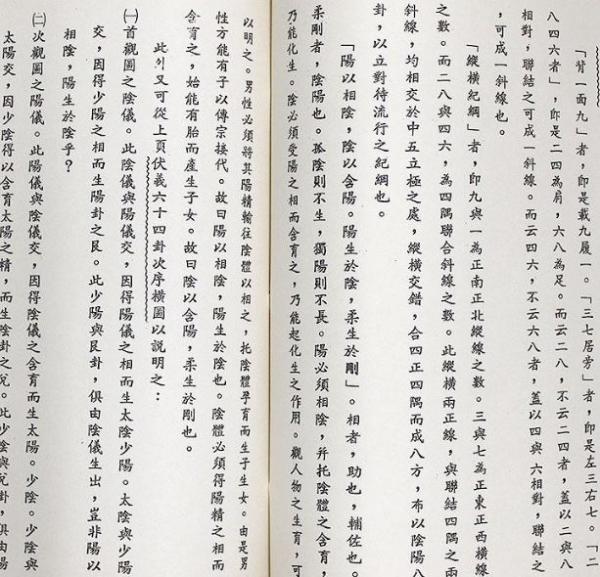 「背一面九」者，即是戴九履一。「三七居旁」者，即是左三右七。「二
八四六者」，即是二四為肩，六八為足。而云二八，不云二四者，蓋以二與八
相對，聯結之可成一斜線。而云四六，不云六八者，蓋以四與六相對，聯結之
，可成一斜線也。
「縱橫紀綱」者，即九與一為正南正北縱線之數。三與七為正東正西橫線
之數。而二八與四六，為四隅聯合斜線之數。此縱橫兩正線，與聯結四隅之兩
斜線，均相交於中五立極之處，縱橫交錯，合四正四隅而成八方，布以陰陽八
卦，以立對待流行之紀綱也。
「陽以相陰，陰以含陽。陽生於陰，柔生於剛」。相者，助也，輔佐也。
柔剛者，陰陽也。孤陰則不生，獨陽則不長。陽必須相陰，幷托陰體之含育，
乃能化生。陰必須受陽之相而含育之，乃能起化生之作用。觀人物之生育，可
以明之。男性必須將其陽精輸往陰體以相之，托陰體孕育而生子女。由是男
性方能有子以傳宗接代。故曰陽以相陰，陽生於陰也。陰體必須得陽精之相而
含育之，始能有胎而產生子女。故曰陰以含陽，柔生於剛也。
此外又可從上頁伏羲六十四卦次序橫圖以說明之：
㈠首觀圖之陰儀。此陰儀與陽儀交，因得陽儀之相而生太陰少陽。太陰與少陽
交，因得少陽之相而生陽卦之艮。此少陽與艮卦，俱由陰儀生出，豈非陽以
相陰，陽生於陰乎？
㈡次觀圖之陽儀。此陽儀與陰儀交，因得陰儀之含育而生太陽。少陰。少陰與
太陽交，因少陰得以含育太陽之精，而生陰卦之兌。此少陰與兌卦，俱由陽